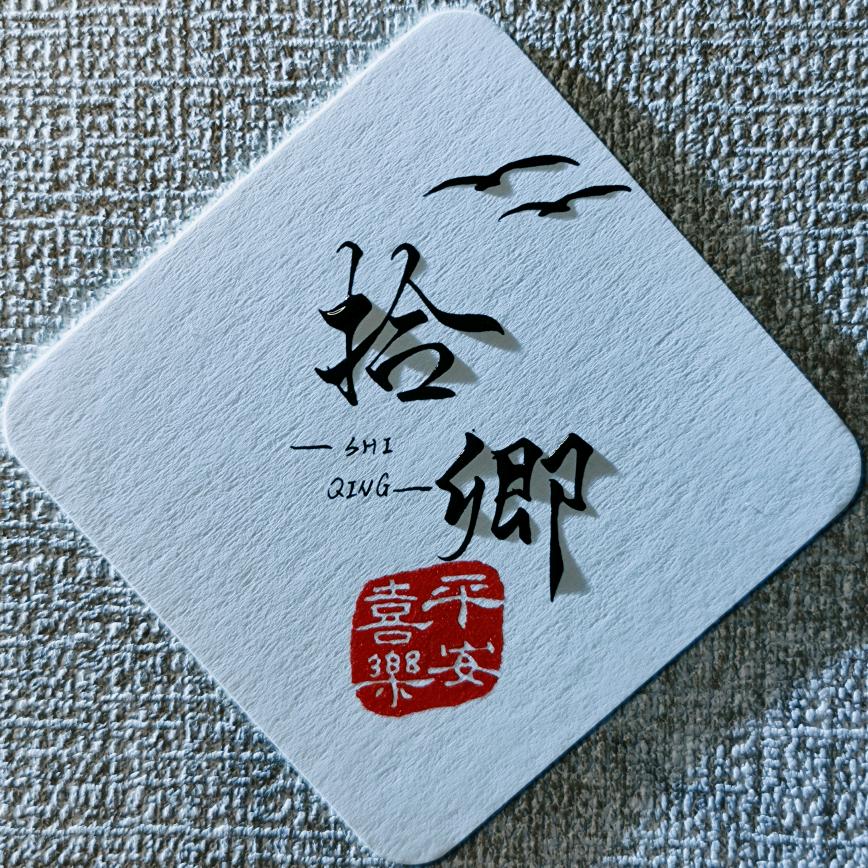 拾
卿
— SHI
QING —
平安
喜樂